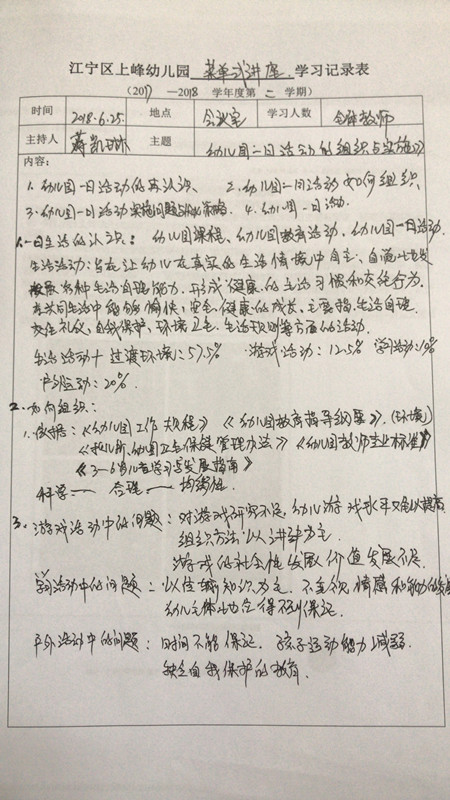 江宁区上峰幼儿园 菜单式讲座 学习记录表
（2017 —2018 学年度第 二 学期）
时间 2018.6.25. 地点 会议室 学习人数 全体教师
主持人 蒋凯琳 主题 幼儿园一日活动的组织与实施
内容：
1. 幼儿园一日活动的再认识、 2. 幼儿园一日活动如何组织、
3. 幼儿园一日活动实施问题与优化策略. 4. 幼儿园一日活动.
一日生活的认识： 幼儿园课程、幼儿园教育活动、幼儿园一日活动.
生活活动：旨在让幼儿在真实的生活情境中自主、自觉地发展
各种生活自理能力，形成健康的生活习惯和交往行为，
在共同生活中能够愉快、安全、健康的成长、主要指生活自理、
交往礼仪、自我保护、环境卫生、生活规则等方面的活动.
生活活动+过渡环境：57.5% 游戏活动：12.5% 学习活动：10%
户外运动：20%
2. 如何组织：
1. 依据：《幼儿园工作规程》《幼儿园教育指导纲要》.（环境）
《托儿所、幼儿园卫生保健管理办法》《幼儿园教师专业标准》
《3—6岁儿童学习与发展指南》
科学— 合理— 均衡性.
3. 游戏活动中的问题：对游戏研究不足，幼儿游戏水平又难以提高
组织方法以讲解为主.
游戏的社会性发展价值发展不足.
学习活动中的问题：以传输知识为主，不重视情感和能力的发展
幼儿主体地位得不到保证.
户外活动中的问题：时间不能保证. 孩子运动能力减弱.
缺乏自我保护的教育.